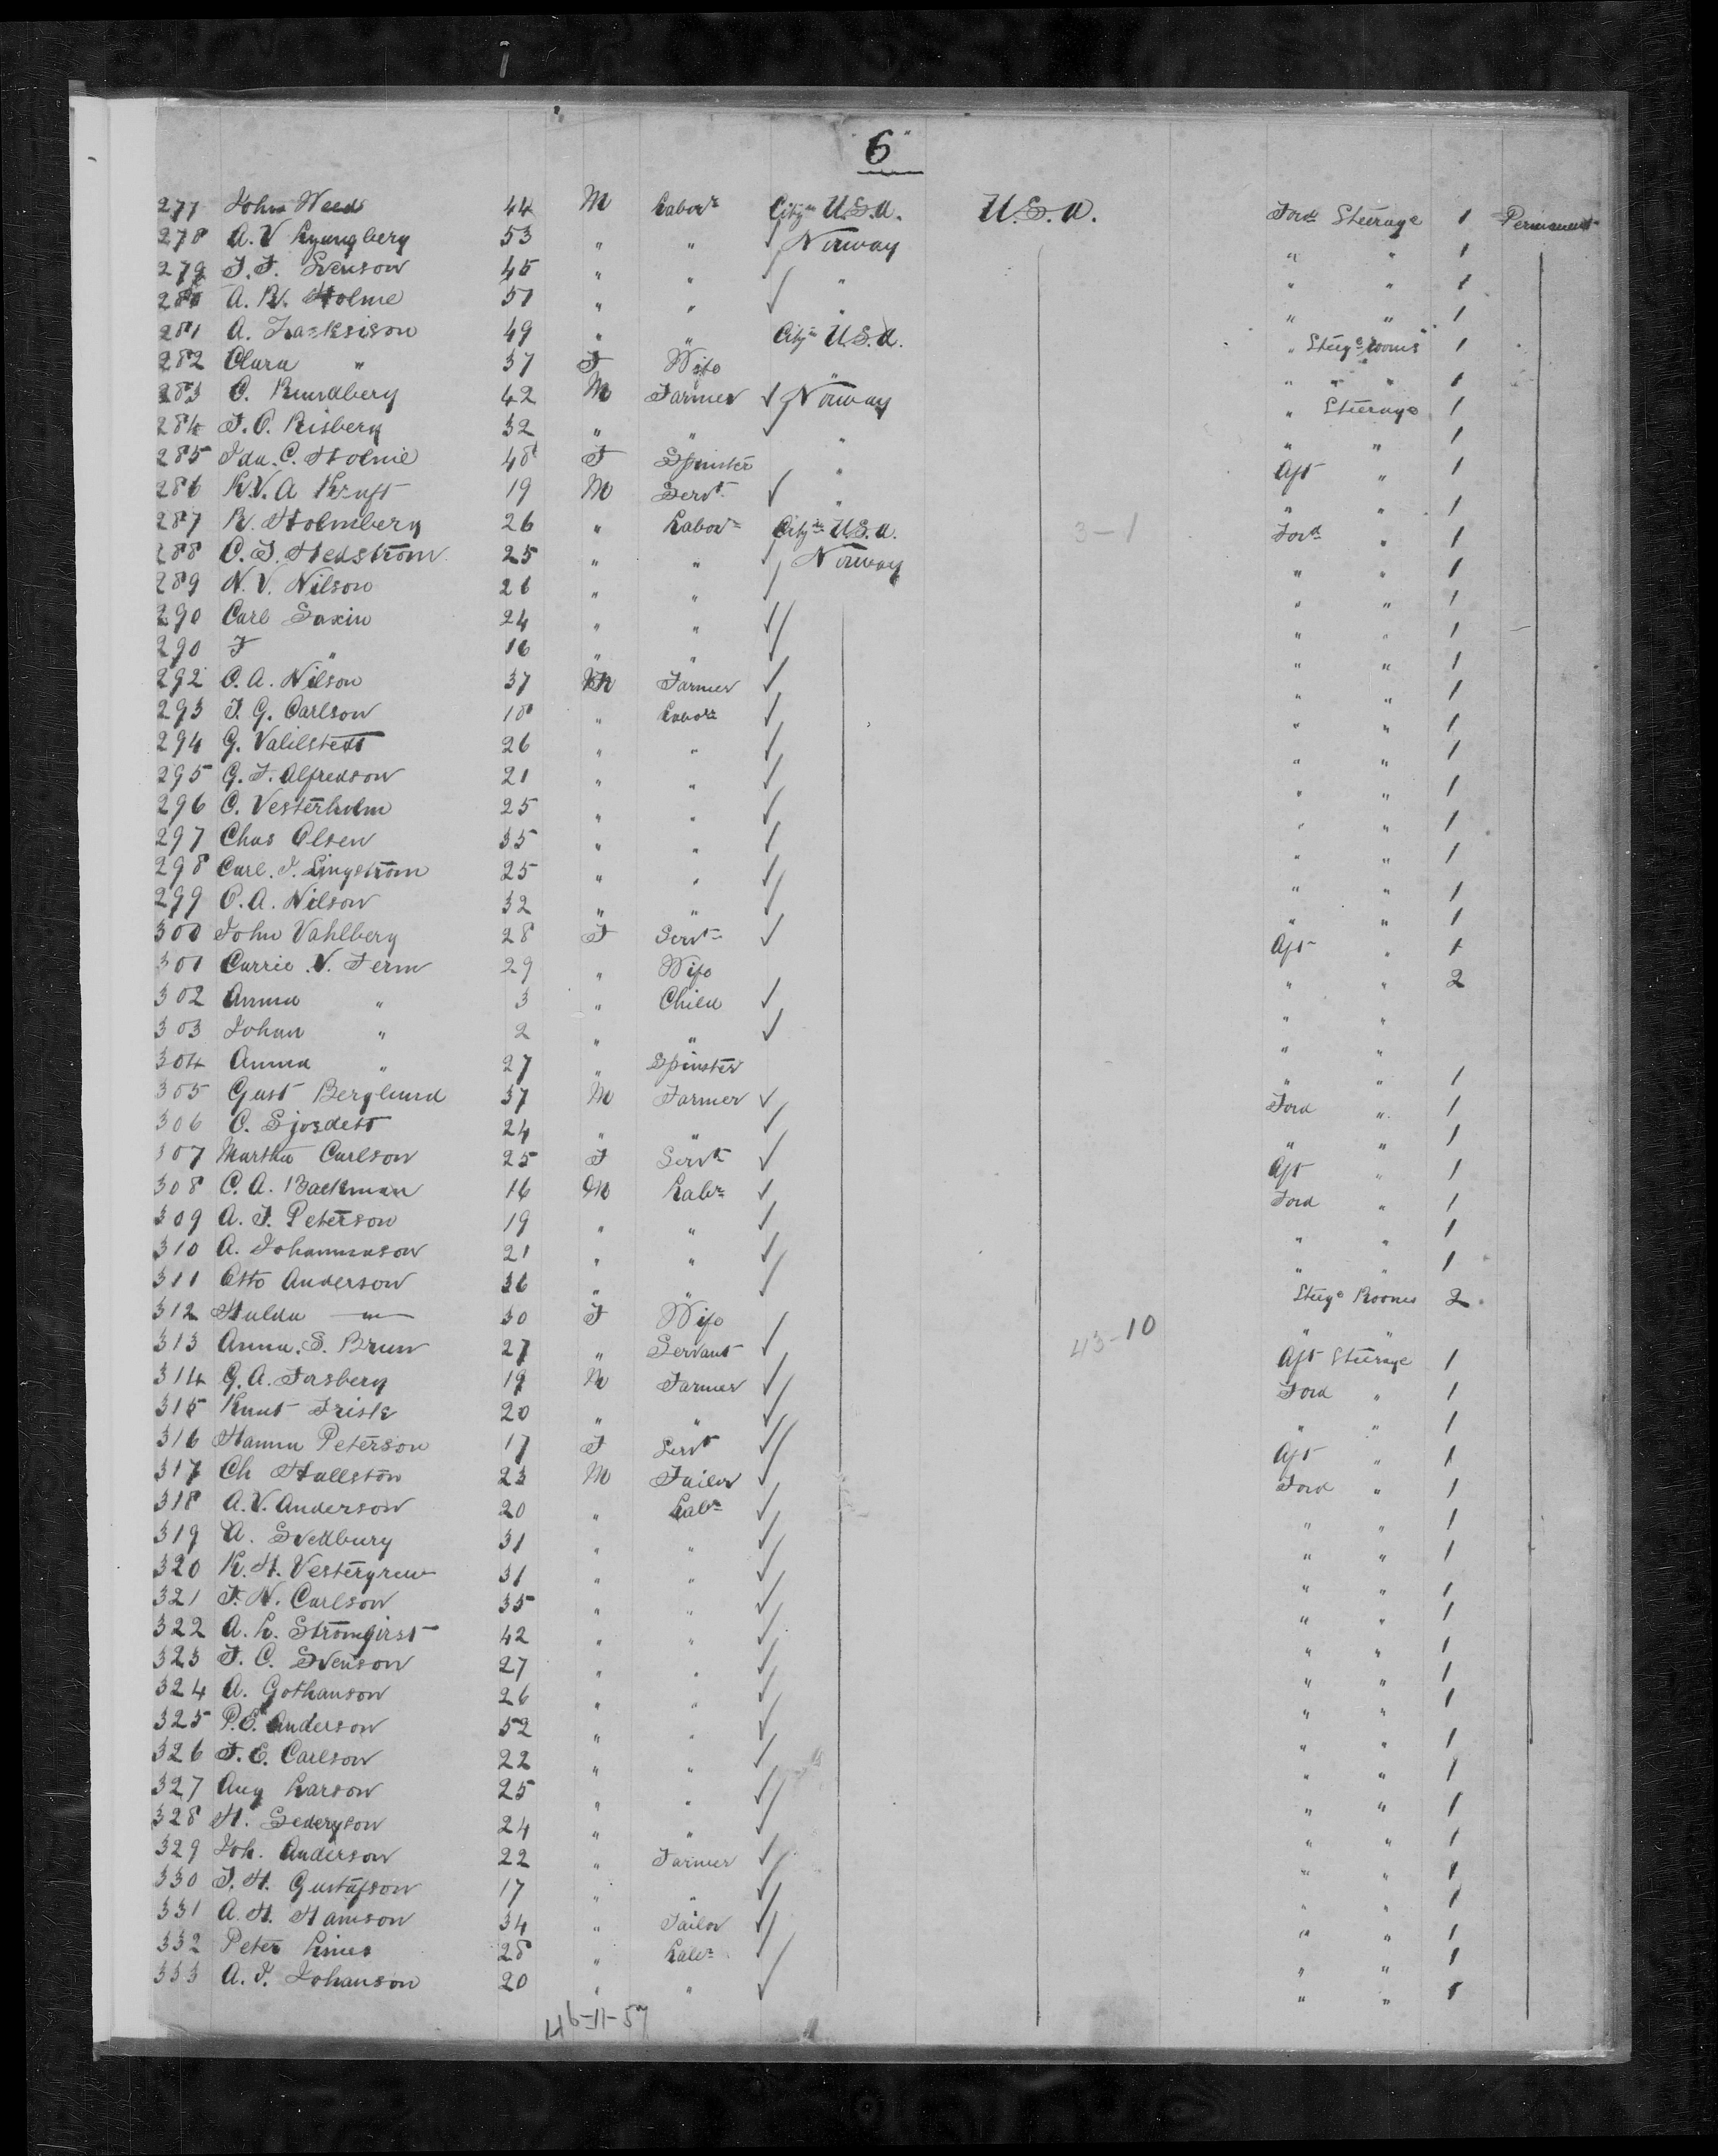 "6"
277 John Weeds 44 M Labor City U.S.A. U.S.A. Ford Steerage 1 Permanent
278 A. V Ljungberg 53 " " ✓ Norway " " 1
279 J. F. Svenson 45 " " ✓ " " " 1
280 A. W. Holme 51 " " ✓ " " " 1
281 A. Isaksison 49 " " City U.S.A. " Steege Rooms 1
282 Clara " 37 F Wife " " " " 1
283 C. Rundberg 42 M Farmer ✓ Norway " Steerage 1
284 J. O. Risberg 32 " " ✓ " " " 1
285 Ida. C. Holme 48 F Spinster " Aft " 1
286 K. V. A Kruft 19 M Servt ✓ " " " 1
287 R. Holmberg 26 " Labor City U.S.A. 3-1 Ford " 1
288 C. J. Hedstrom 25 " " ✓ Norway " " 1
289 N. V. Nilson 26 " " ✓ " " 1
290 Carl Saxin 24 " " ✓ " " 1
290 F " 16 " " ✓ " " 1
292 C. A. Nilson 37 M Farmer ✓ " " 1
293 J. G. Carlson 18 " Labor ✓ " " 1
294 G. Valilstedt 26 " " ✓ " " 1
295 G. F. Alfredson 21 " " ✓ " " 1
296 C. Vesterholm 25 " " ✓ " " 1
297 Chas Olsen 35 " " ✓ " " 1
298 Carl. J. Lingstrom 25 " " ✓ " " 1
299 C. A. Nilson 32 " " ✓ " " 1
300 John Vahlberg 28 F Servt ✓ Aft " 1
301 Carrie V. Ferm 29 " Wife " " 2
302 Anna " 3 " Child ✓ " "
303 Johan " 2 " " ✓ " "
304 Anna " 27 " Spinster " " 1
305 Gust Berglund 37 M Farmer ✓ Ford " 1
306 C. Sjosdett 24 " " ✓ " " 1
307 Martha Carlson 25 F Servt ✓ Aft " 1
308 C. A. Backman 16 M Labr ✓ Ford " 1
309 A. F. Peterson 19 " " ✓ " " 1
310 A. Johannason 21 " " ✓ " " 1
311 Otto Anderson 36 " " ✓ Steege Rooms 2
312 Hulda " 30 F Wife " "
313 Anna. S. Brun 27 " Servant ✓ 43-10 Aft Steerage 1
314 G. A. Forsberg 19 M Farmer ✓ Ford " 1
315 Knut Frisk 20 " " ✓ " " 1
316 Hanna Peterson 17 F Servt ✓ Aft " 1
317 Ch Hallston 23 M Tailor ✓ Ford " 1
318 A. V. Anderson 20 " Labr ✓ " " 1
319 A. Svedburg 31 " " ✓ " " 1
320 K. H. Vestergren 31 " " ✓ " " 1
321 F. N. Carlson 35 " " ✓ " " 1
322 A. L. Stromqirst 42 " " ✓ " " 1
323 J. C. Svenson 27 " " ✓ " " 1
324 A. Gothanson 26 " " ✓ " " 1
325 P. E. Anderson 52 " " ✓ " " 1
326 F. E. Carlson 22 " " ✓ " " 1
327 Aug Larson 25 " " ✓ " " 1
328 H. Sederyson 24 " " ✓ " " 1
329 Joh. Anderson 22 " Farmer ✓ " " 1
330 J. H. Gustafson 17 " " ✓ " " 1
331 A. H. Hanson 34 " Tailor ✓ " " 1
332 Peter Lines 28 " Labr ✓ " " 1
333 A. F. Johanson 20 " " ✓ " " 1
46-11-57